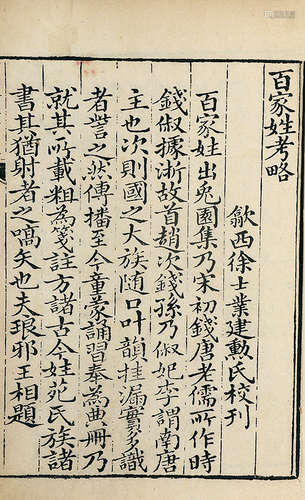 百家姓考略
歙西徐士業建勳氏校刊
百家姓出兎園集乃宋初錢唐老儒所作時
錢俶據浙故首趙次錢孫乃俶妃李謂南唐
主也次則國之大族随口叶韻挂漏實多識
者訾之然傳播至今童蒙誦習奉為典冊乃
就其所載粗為箋註方諸古今姓苑氏族諸
書其猶射者之嚆矢也夫琅邪王相題